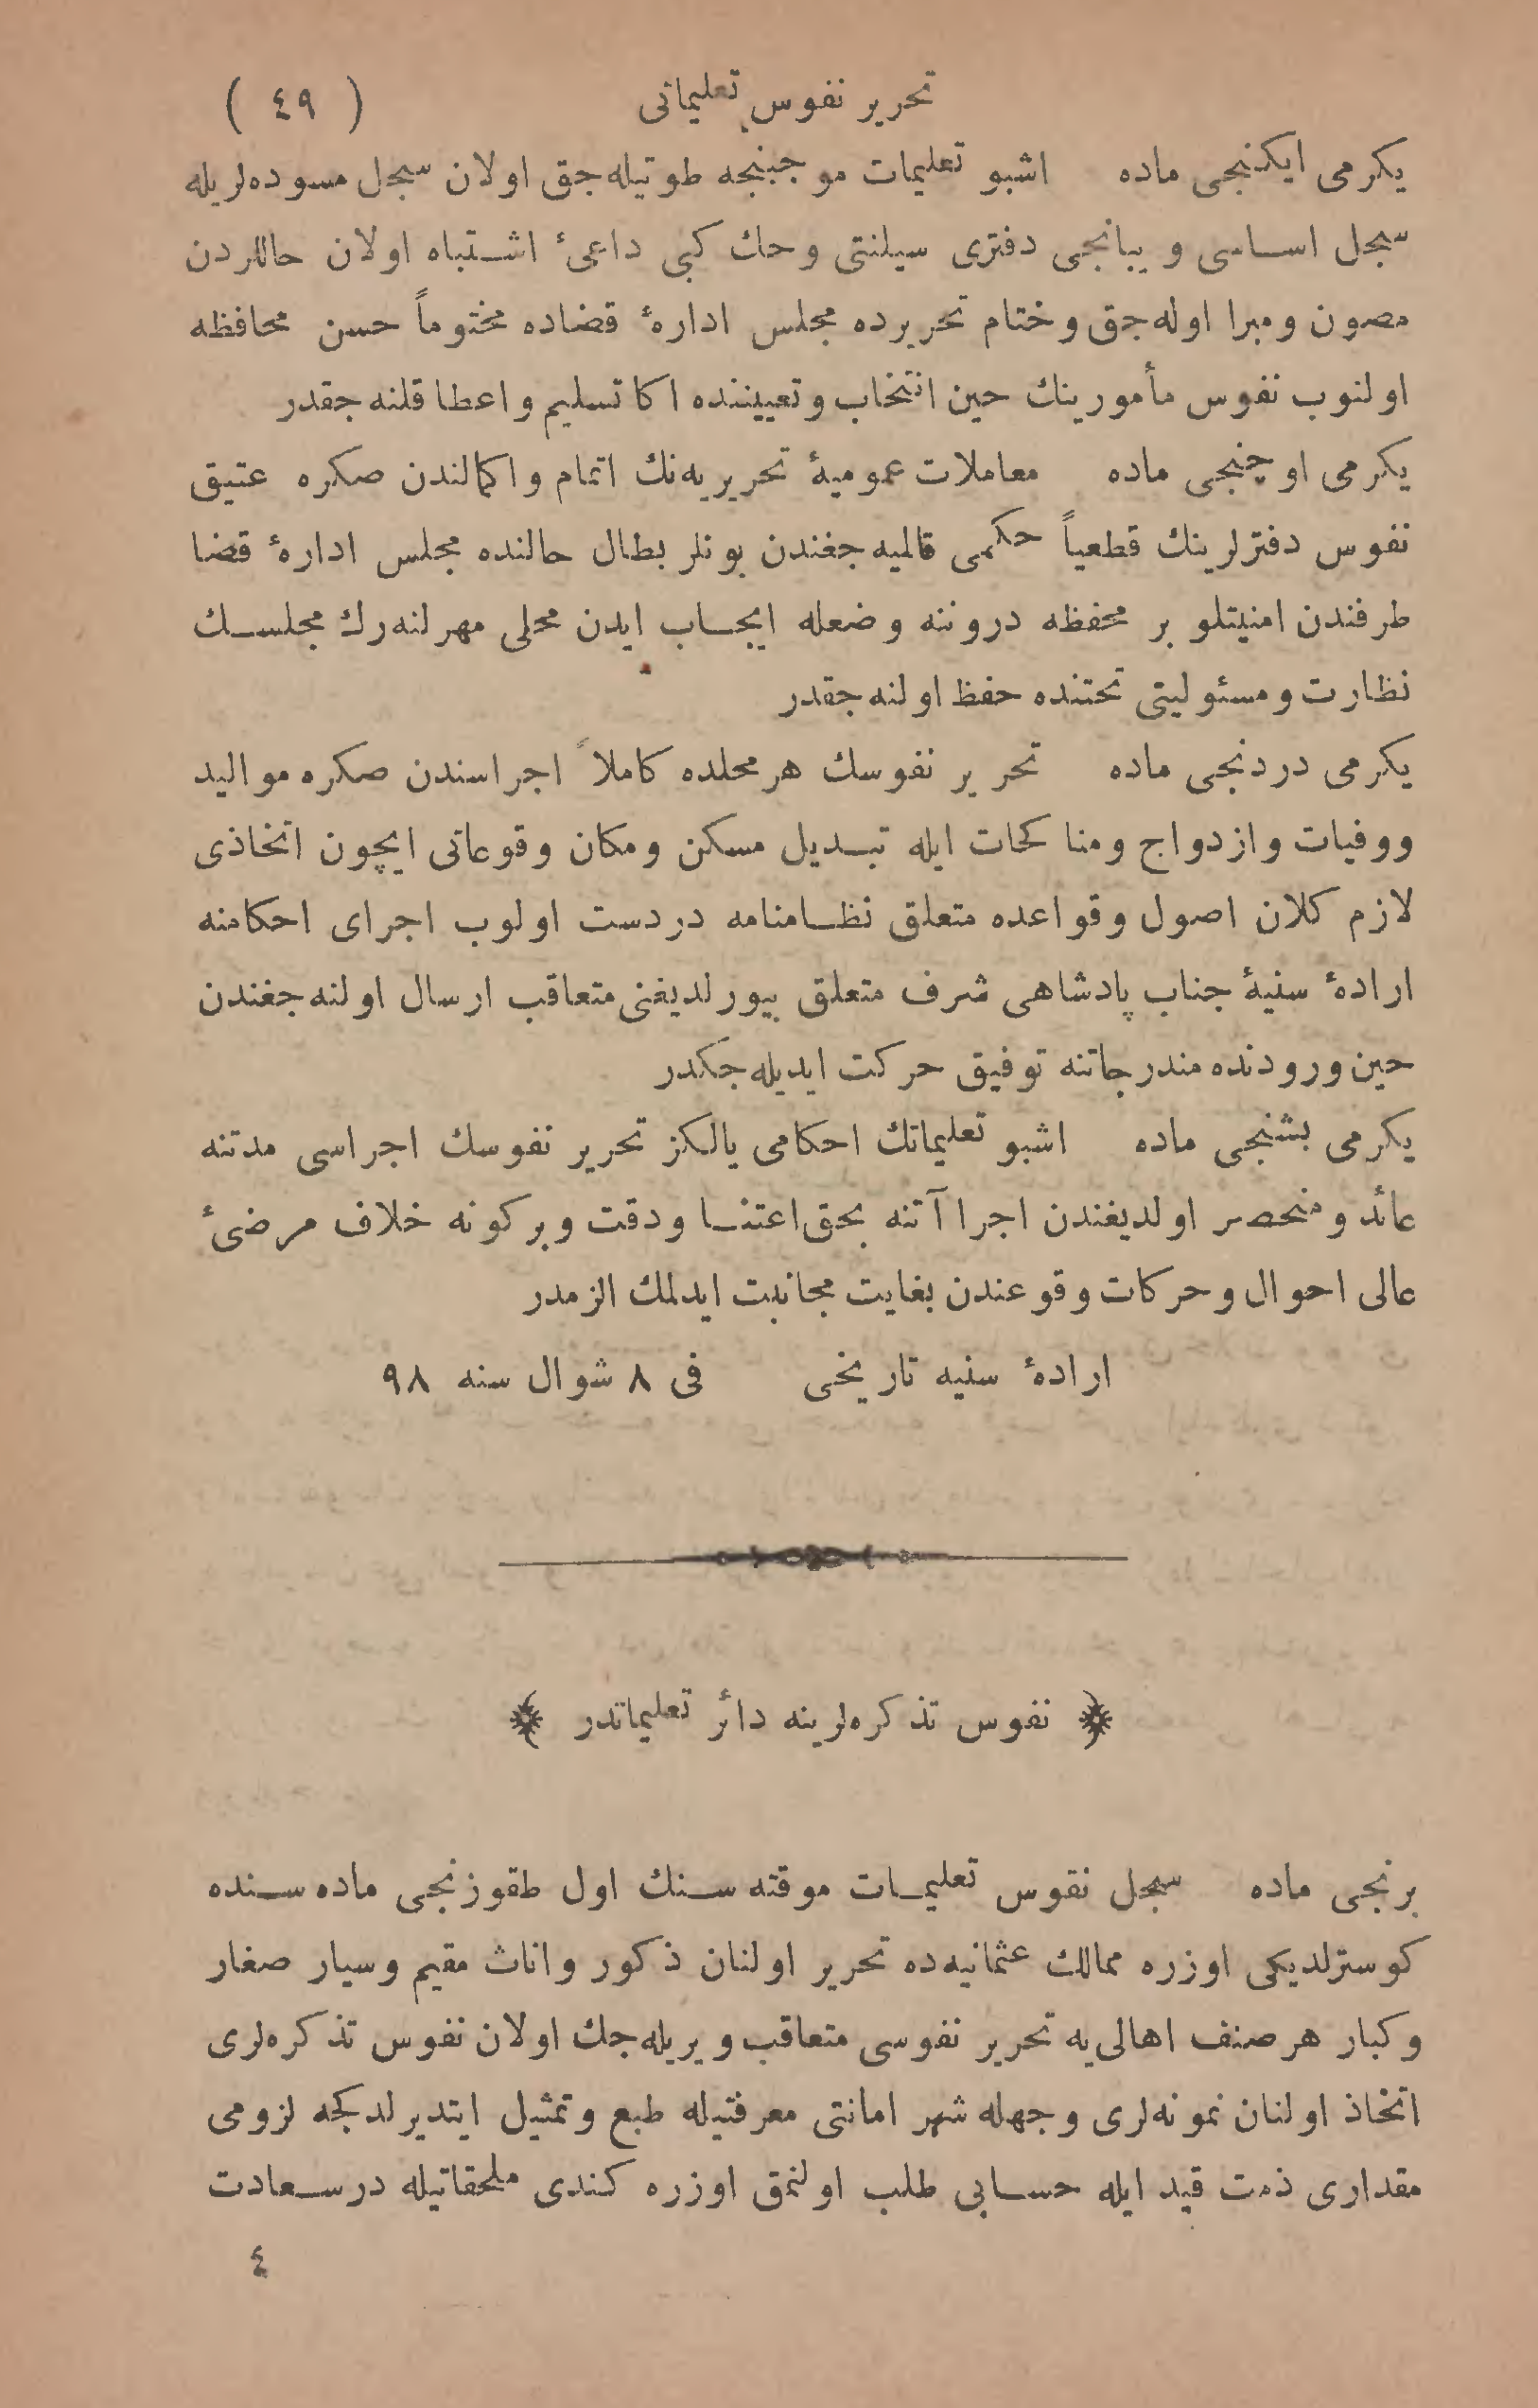 تحریر نفوس تعلیماتی ( ٤٩ )
یكرمی ایكنجی ماده اشبو تعلیمات موجبنجه طوتیله‌جق اولان سجل مسوده‌لریله
سجل اساسی و یبانجی دفتری سیلنتی وحك كبی داعیٔ اشتباه اولان حاللردن
مصون ومبرا اوله‌جق وختام تحریرده مجلس ادارۀ قضاده مختوماً حسن محافظه
اولنوب نفوس مأمورینك حین انتخاب وتعییننده اكا تسلیم واعطا قلنه‌جقدر
یكرمی اوچنجی ماده معاملات عمومیۀ تحریریه‌نك اتمام واكمالندن صكره عتیق
نفوس دفترلرینك قطعیاً حكمی قالمیه‌جغندن بونلر بطال حالنده مجلس ادارۀ قضا
طرفندن امنیتلو بر محفظه دروننه وضعله ایجاب ایدن محلی مهرلنه‌رك مجلسك
نظارت ومسئولیتی تحتنده حفظ اولنه‌جقدر
یكرمی دردنجی ماده تحریر نفوسك هر محلده كاملاً اجراسندن صكره موالید
ووفیات وازدواج ومناكحات ایله تبدیل مسكن ومكان وقوعاتی ایچون اتخاذی
لازم كلان اصول وقواعده متعلق نظامنامه دردست اولوب اجرای احكامنه
ارادۀ سنیۀ جناب پادشاهی شرف متعلق بیورلدیغنی متعاقب ارسال اولنه‌جغندن
حین ورودنده مندرجاتنه توفیق حركت ایدیله‌جكدر
یكرمی بشنجی ماده اشبو تعلیماتك احكامی یالكز تحریر نفوسك اجراسی مدتنه
عائد ومنحصر اولدیغندن اجراآتنه بحق اعتنا ودقت وبركونه خلاف مرضیٔ
عالی احوال وحركات وقوعندن بغایت مجانبت ایدلمك الزمدر
ارادۀ سنیه تاریخی فی ٨ شوال سنه ٩٨
نفوس تذكره‌لرینه دائر تعلیماتدر
برنجی ماده سجل نفوس تعلیمات موقته‌سنك اول طقوزنجی ماده‌سنده
كوسترلدیكی اوزره ممالك عثمانیه‌ده تحریر اولنان ذكور واناث مقیم وسیار صغار
وكبار هر صنف اهالی‌یه تحریر نفوسی متعاقب ویریله‌جك اولان نفوس تذكره‌لری
اتخاذ اولنان نمونه‌لری وجهله شهر امانتی معرفتیله طبع وتمثیل ایتدیرلدكجه لزومی
مقداری ذمت قید ایله حسابی طلب اولنمق اوزره كندی ملحقاتیله درسعادت
٤